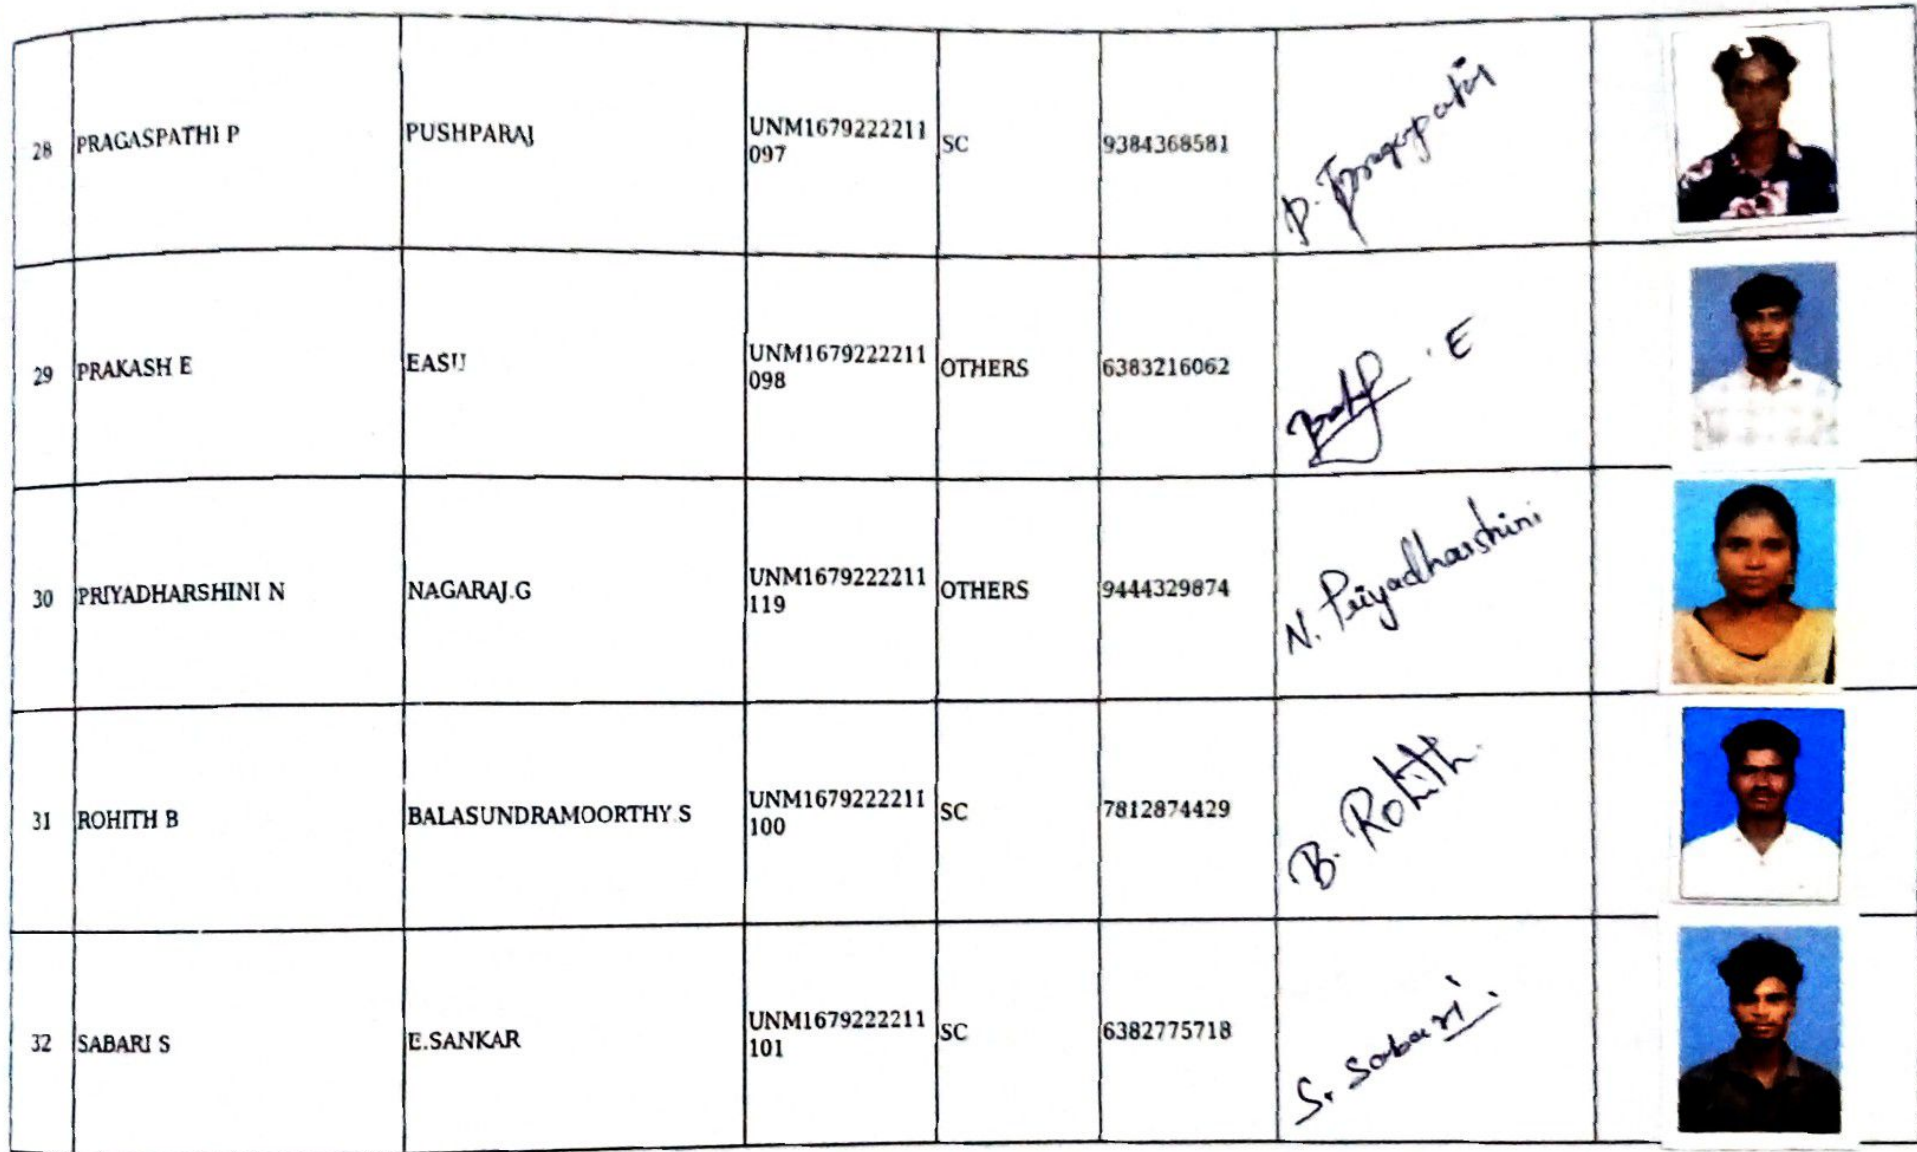 28 PRAGASPATHI P PUSHPARAJ UNM1679222211 SC 9384368581 P. Pragaspathi
097
29 PRAKASH E EASU UNM1679222211 OTHERS 6383216062 E
098
30 PRIYADHARSHINI N NAGARAJ.G UNM1679222211 OTHERS 9444329874 N. Priyadharshini
119
31 ROHITH B BALASUNDRAMOORTHY.S UNM1679222211 SC 7812874429 B. Rohith
100
32 SABARI S E.SANKAR UNM1679222211 SC 6382775718 S. Sabari
101